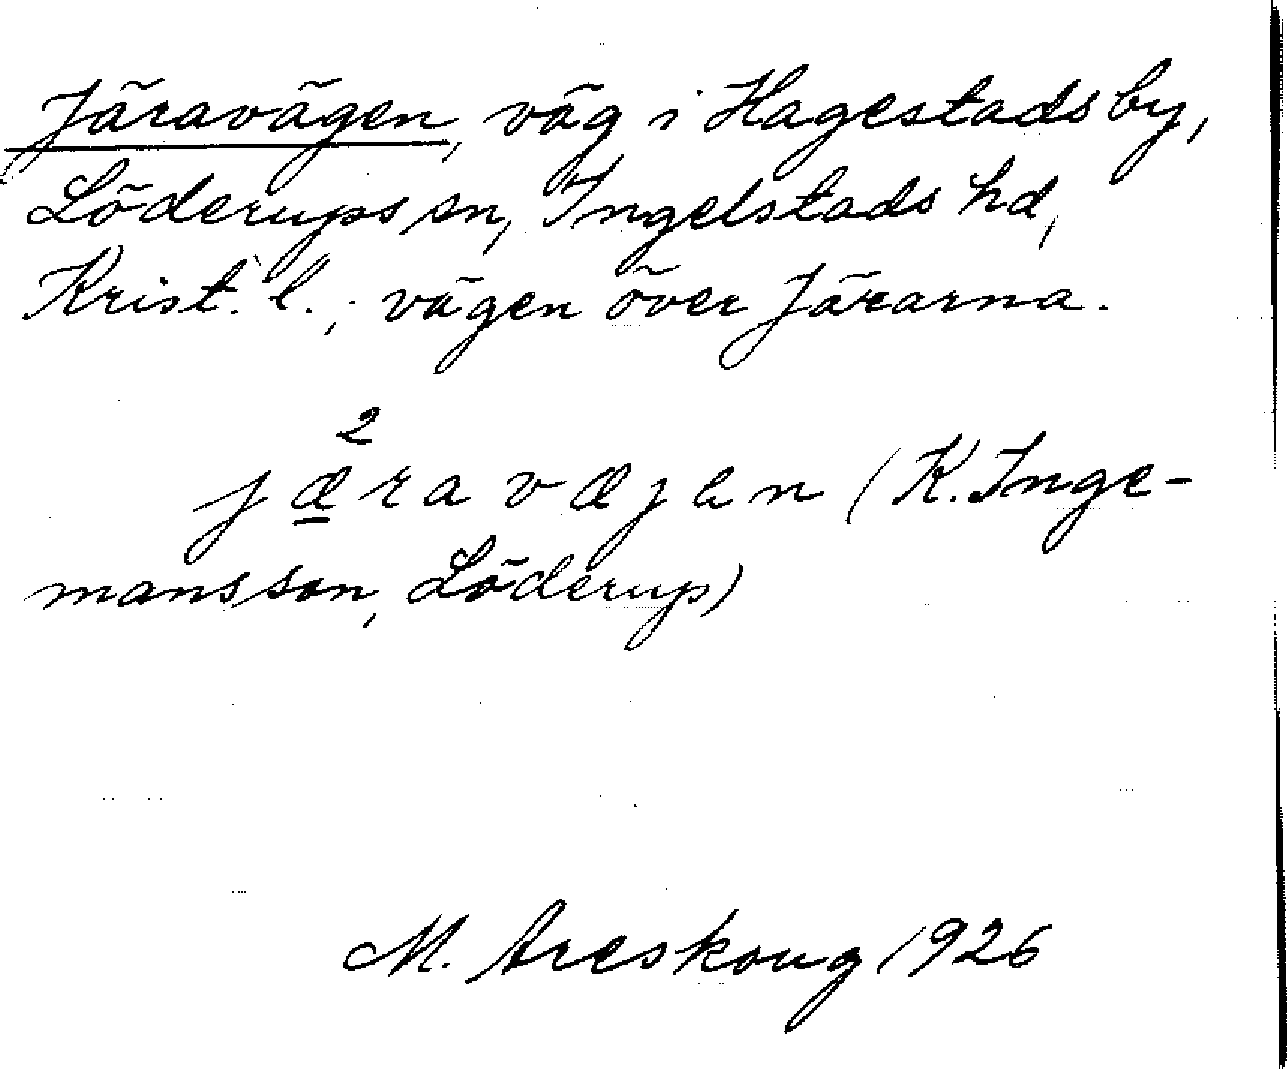 Järavägen, väg i Hagestads by,
Löderups sn, Ingelstads hd,
Krist. l.; vägen över Järarna.
2
jæravæjen (K. Inge-
mansson, Löderup)
M. Areskoug 1926